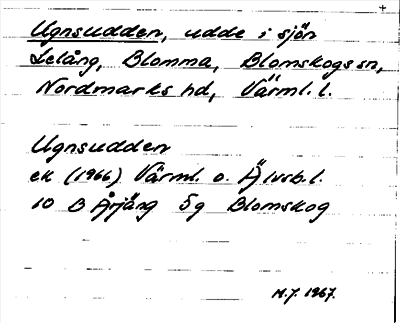 Ugnsudden, udde i sjön
Lelång, Blomma, Blomskogs sn,
Nordmarks hd, Värml. l.
Ugnsudden
ek (1966) Värml. o. Älvsb. l.
10 B Årjäng 5g Blomskog
M.J. 1967.